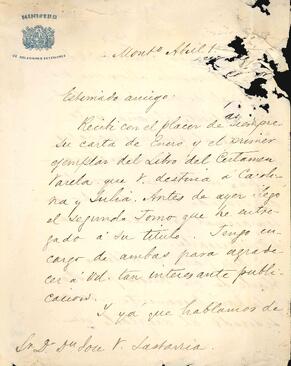 MINISTRO
DE RELACIONES EXTERIORES
Montº Abril 1
Estimado amigo:
Recibí con el placer de siempre
su carta de Enero y el primer
ejemplar del Libro del Certamen
Varela que V. destina a Caroli-
na y Julia. Antes de ayer llegó
el segundo Tomo que he entre-
gado á su titulo. Tengo en-
cargo de ambas para agrade-
cer á Vd. tan interesante publi-
cacion.
Y yá que hablamos de
Sr. D. Dn Jose V. Lastarria.